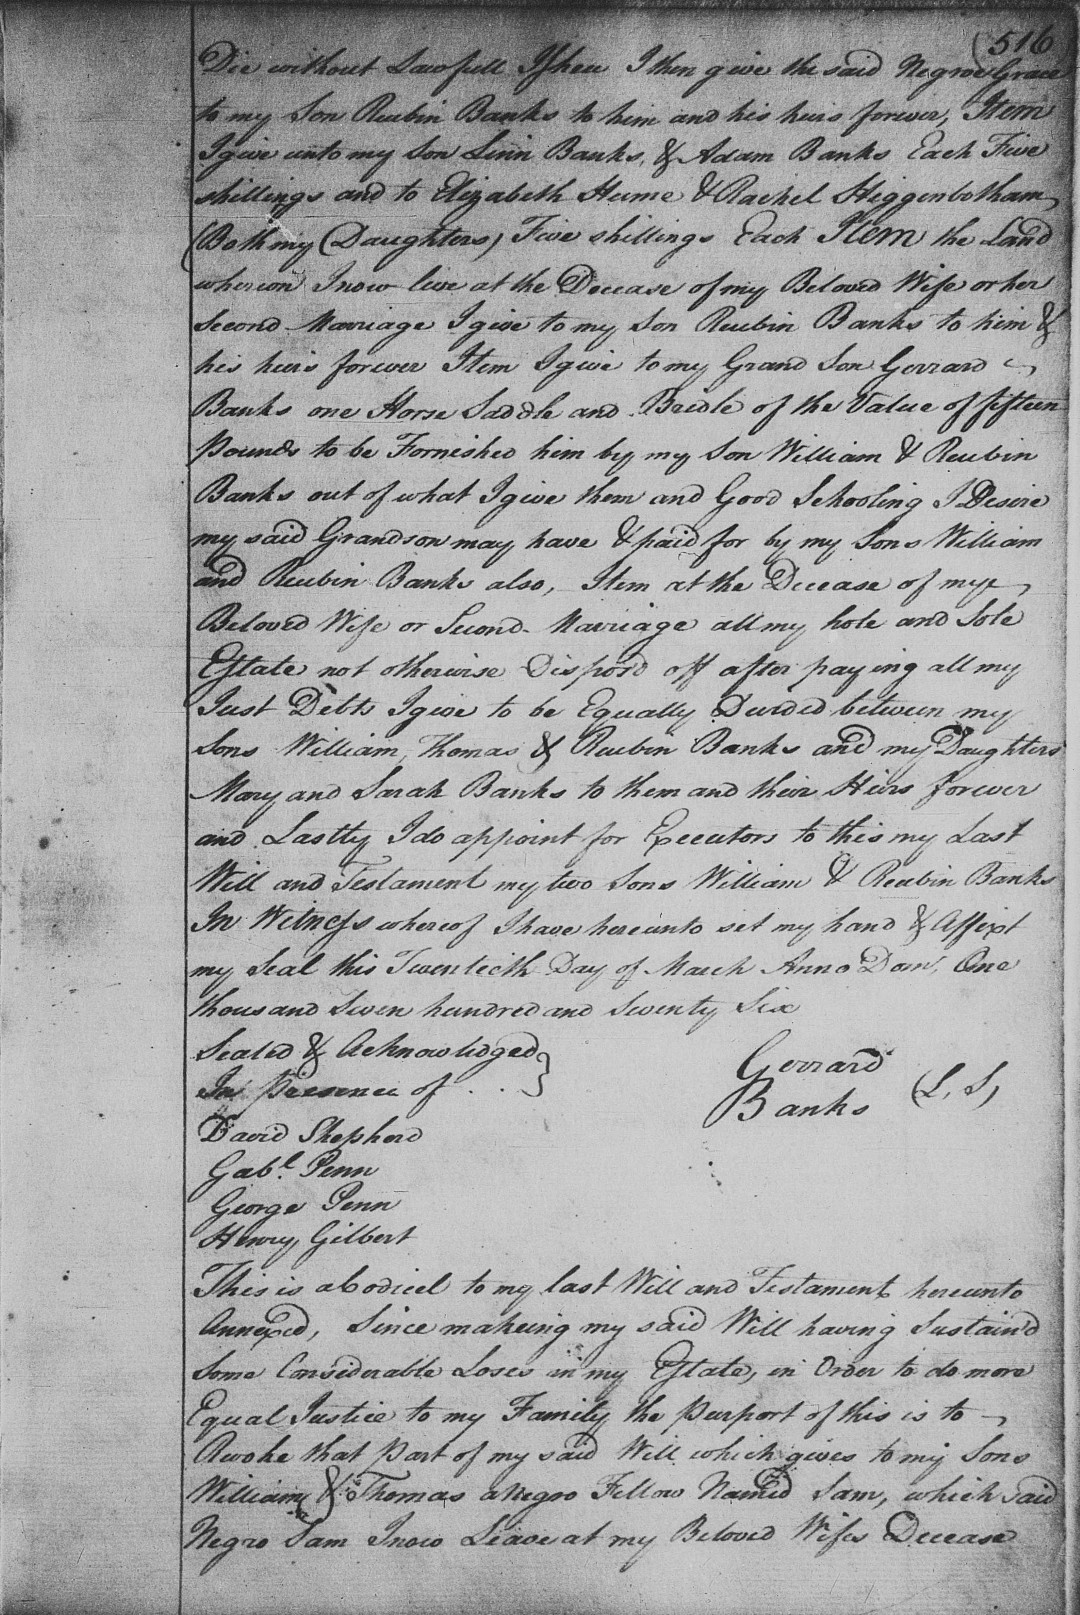 (516
Die without Lawfull Isheu I then give the said Negroe Grace
to my Son Reubin Banks to him and his heirs forever, Item
I give unto my Son Linn Banks, & Adam Banks Each Five
shillings and to Elizabeth Hume & Rachel Higgenbotham
(Both my (Daughters) Five shillings Each Item the Land
whereon I now live at the Decease of my Beloved Wife or her
Second Marriage I give to my Son Reubin Banks to him &
his heirs forever Item I give to my Grand Son Gerrard
Banks one Horse Saddle and Bridle of the Value of fifteen
Pounds to be Fornished him by my Son William & Reubin
Banks out of what I give them and Good Schooling I Desire
my said Grandson may have & paid for by my Sons William
and Reubin Banks also, Item at the Decease of my
Beloved Wife or Second Marriage all my hole and Sole
Estate not otherwise Dispos'd off after paying all my
Just Debts I give to be Equally Devided between my
Sons William, Thomas & Reubin Banks and my Daughters
Mary and Sarah Banks to them and their Heirs forever
and Lastly I do appoint for Executors to this my Last
Will and Testament my two Sons William & Reubin Banks
In Witness whereof I have hereunto set my hand & Affixt
my Seal this Twentieth Day of March Anno Dom, One
thousand Seven hundred and Seventy Six
Sealed & Acknowledged }
In Presence of . . }
Gerrard
Banks (L, S,)
David Shepherd
Gabl. Penn
George Penn
Henry Gilbert
This is a Codicel to my last Will and Testament hereunto
Annexed, Since makeing my said Will having Sustain'd
Some Considerable Loses in my Estate, in Order to do more
Equal Justice to my Family the Purport of this is to
Revoke that Part of my said Will which gives to my Sons
William & Thomas a Negro Fellow Named Sam, which said
Negro Sam I now Leave at my Beloved Wifes Decease